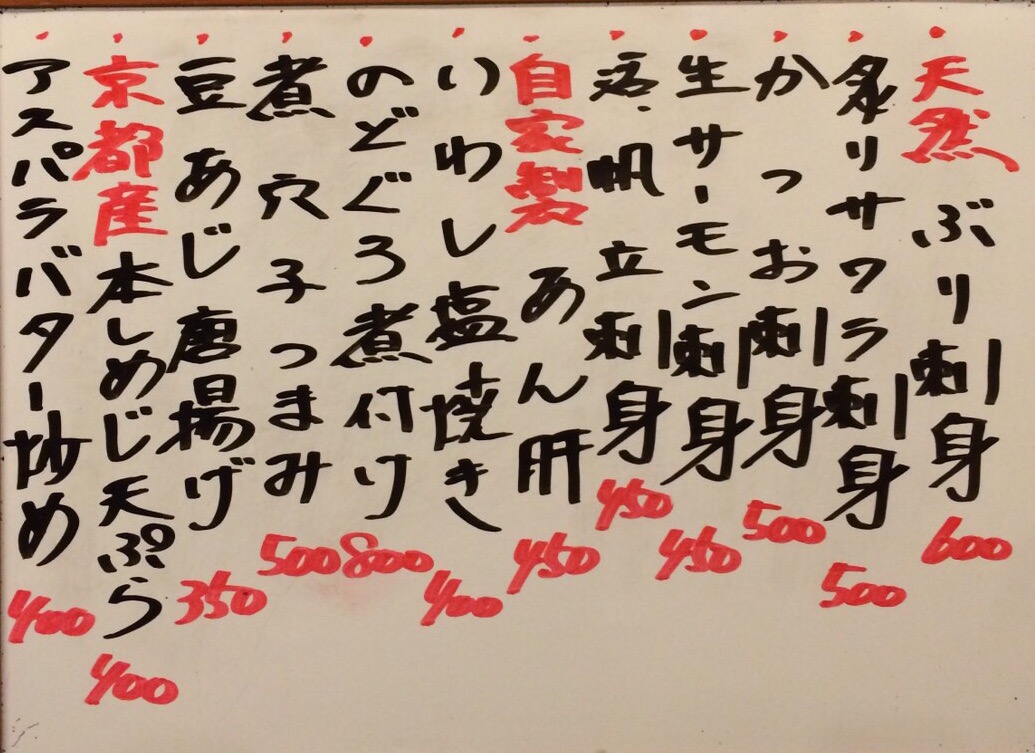 ・天然ぶり刺身600
・炙りサワラ刺身500
・かつお刺身500
・生サーモン刺身450
・活帆立刺身450
・自家製あん肝450
・いわし塩焼き400
・のどぐろ煮付け800
・煮穴子つまみ500
・豆あじ唐揚げ350
・京都産本しめじ天ぷら400
・アスパラバター炒め400